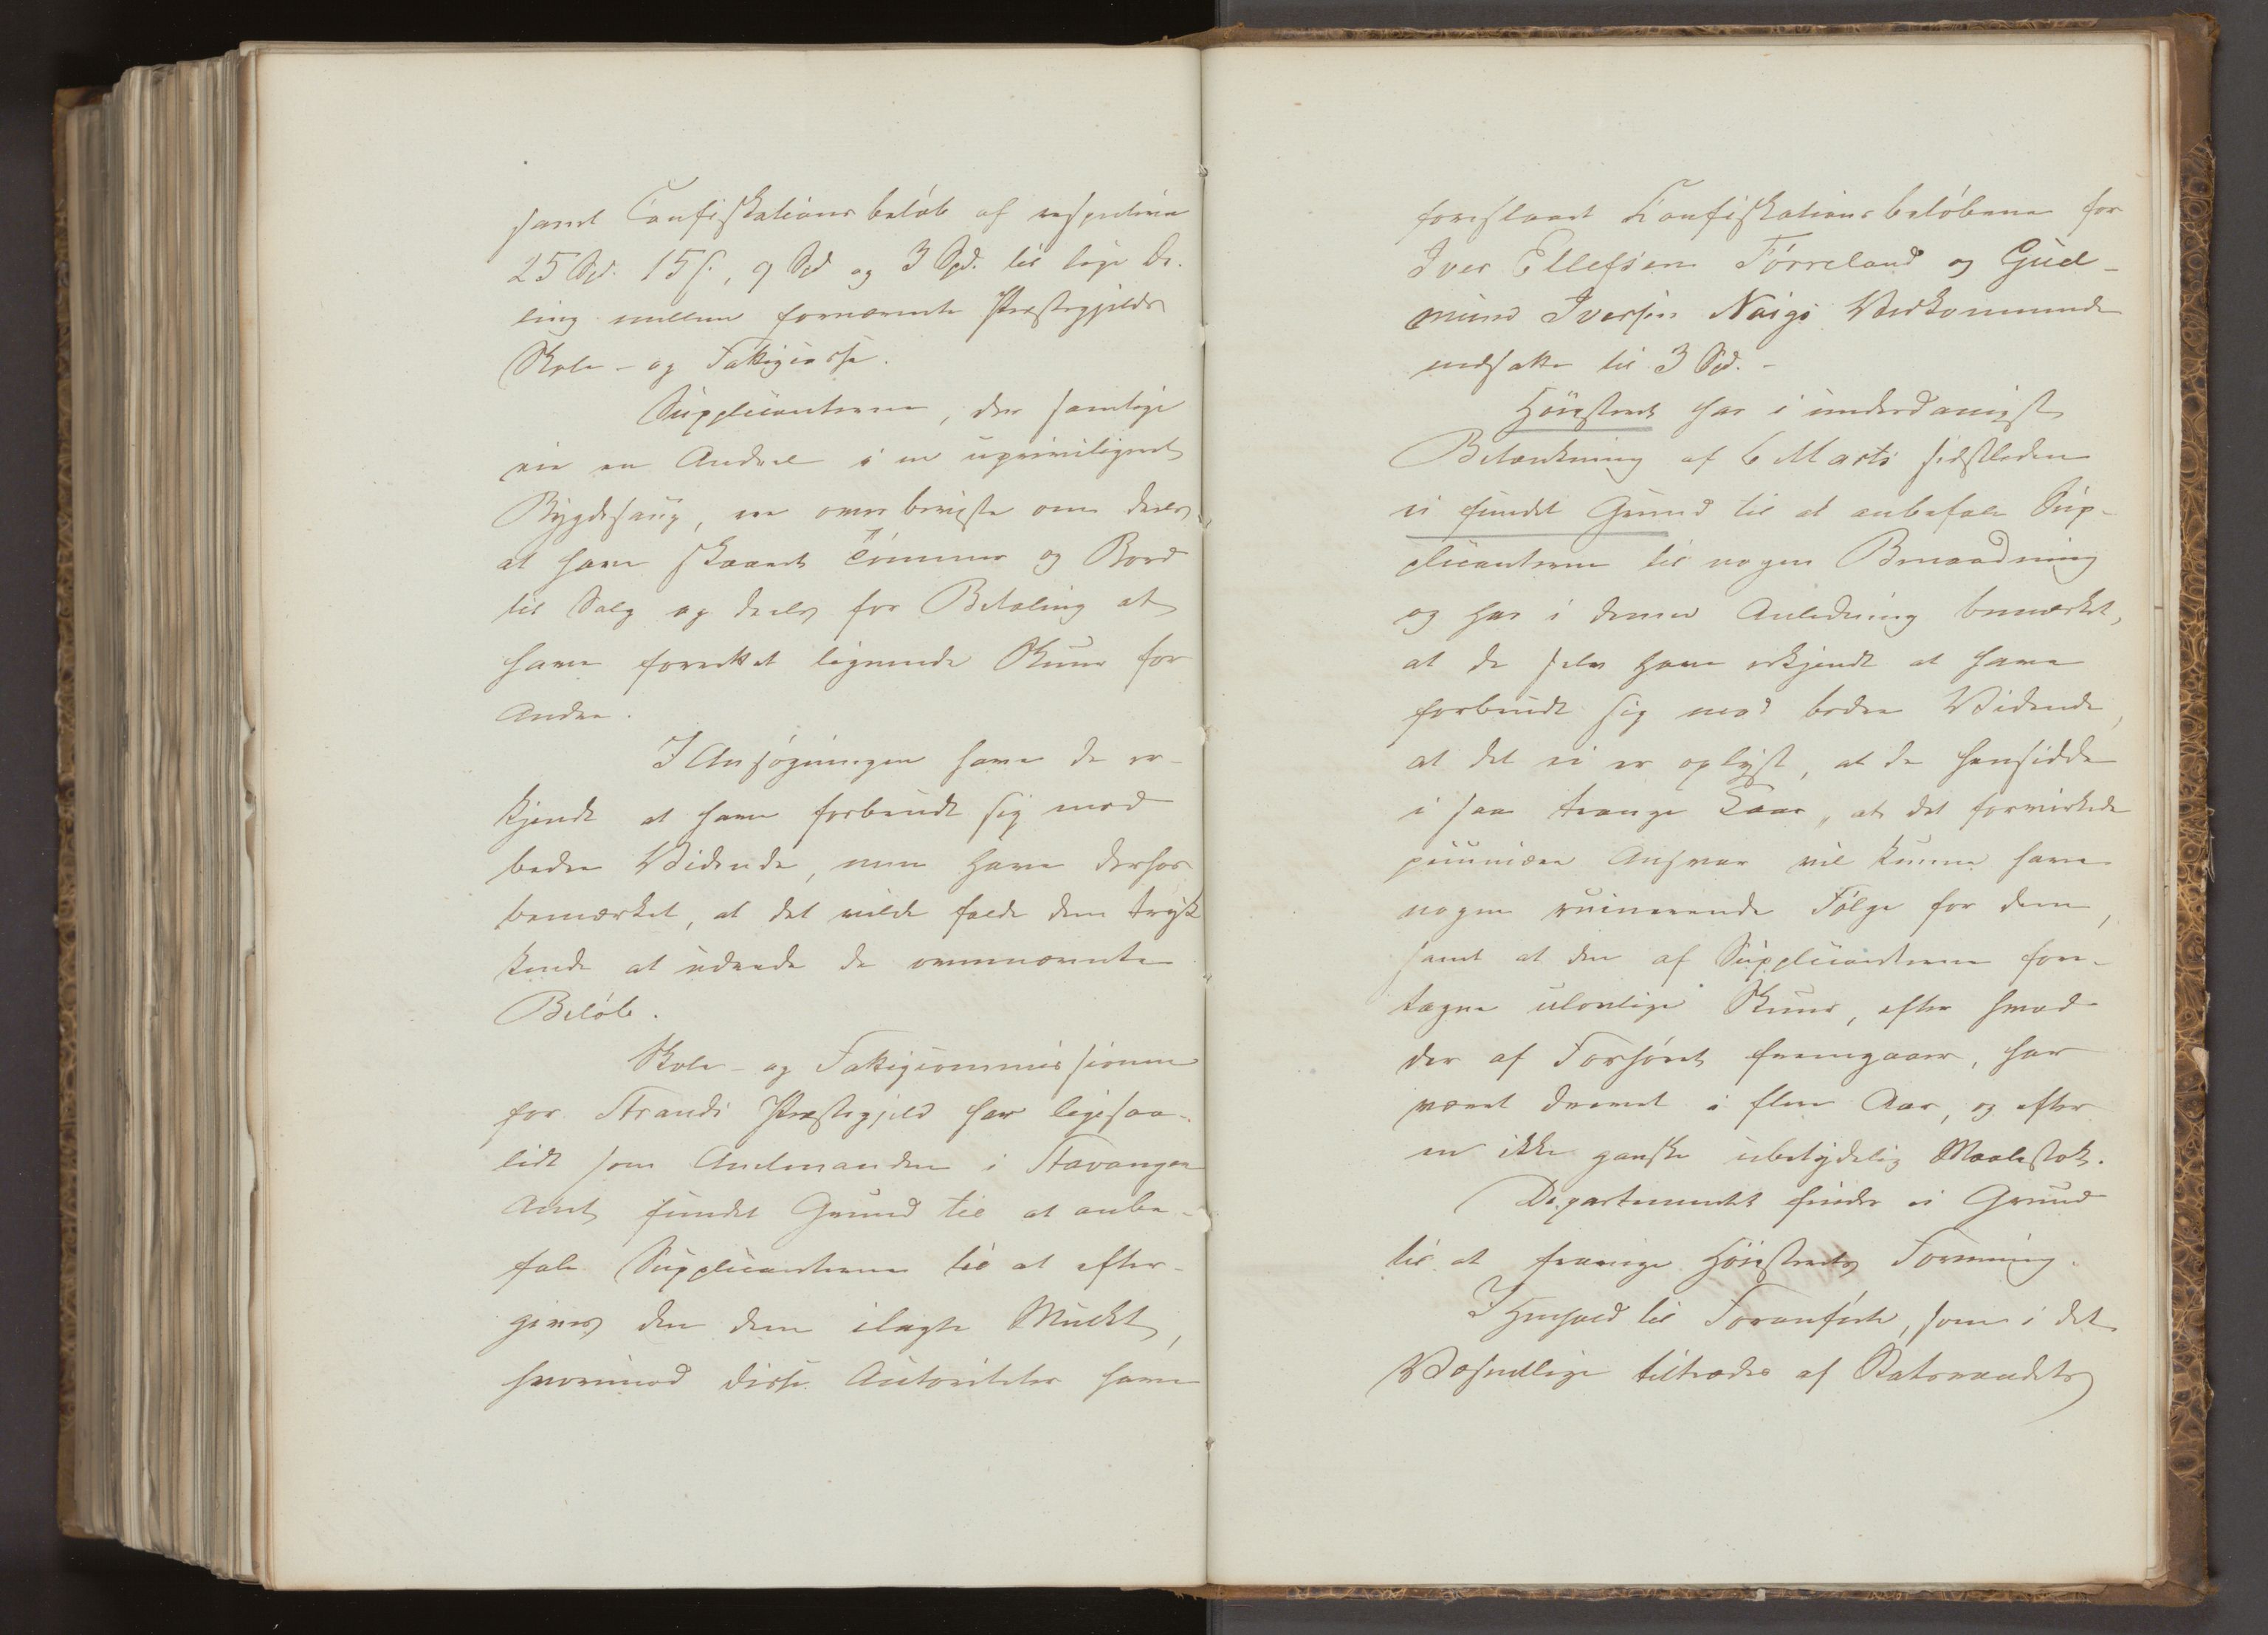 samt Confiskationsbeløb af respective
25 Spd. 15 s., 9 Spd og 3 Spd. til lige De-
ling mellem fornævnte Præstegjelds
Skole- og Fattigcasse.
Supplicanterne, der samtlige
eie en Andeel i en uprivilegeret
Bygdesaug, ere overbeviste om deels
at have skaaret Tømmer og Bord
til Salg og deels for Betaling at
have forrettet lignende Skuur for
Andre.
I Ansøgningen have de er-
kjendt at have forbrudt sig mod
bedre Vidende, men have derhos
bemærket, at det vilde falde dem tryk
kende at udrede de ovennævnte
Beløb.
Skole- og Fattigcommissionen
for Strands Præstegjeld har ligesaa-
lidt som Amtmanden i Stavanger
Amt fundet Grund til at anbe-
fale Supplicanterne til at efter-
gives den dem ilagte Mulkt,
hvorimod disse Autoriteter have
foreslaaet Konfiskationsbeløbene for
Iver Ellefsen Tørreland og Gud-
mund Iversen Naigs Vedkommende
nedsatte til 3 Spd.-
Høiesteret har i underdanigst
Betænkning af 6 Marts sidstleden
ei fundet Grund til at anbefale Sup-
plicanterne til nogen Benaadning
og har i denne Anledning bemærket,
at de selv have erkjendt at have
forbrudt sig mod bedre Vidende,
at det ei er oplyst, at de hensidde
i saa trange Kaar, at det forvirkede
pecuniære Ansvar vil kunne have
nogen ruinerende Følge for dem,
samt at den af Supplicanterne fore-
tagne ulovlige Skuur, efter hvad
der af Forhøret fremgaaer, har
været drevet i flere Aar, og efter
en ikke ganske ubetydelig Maalestok.
Departementet finder ei Grund
til at fravige Høiesterets Formening.
I Henhold til Foranførte, som i det
Væsentlige tiltrædes af Statsraadets